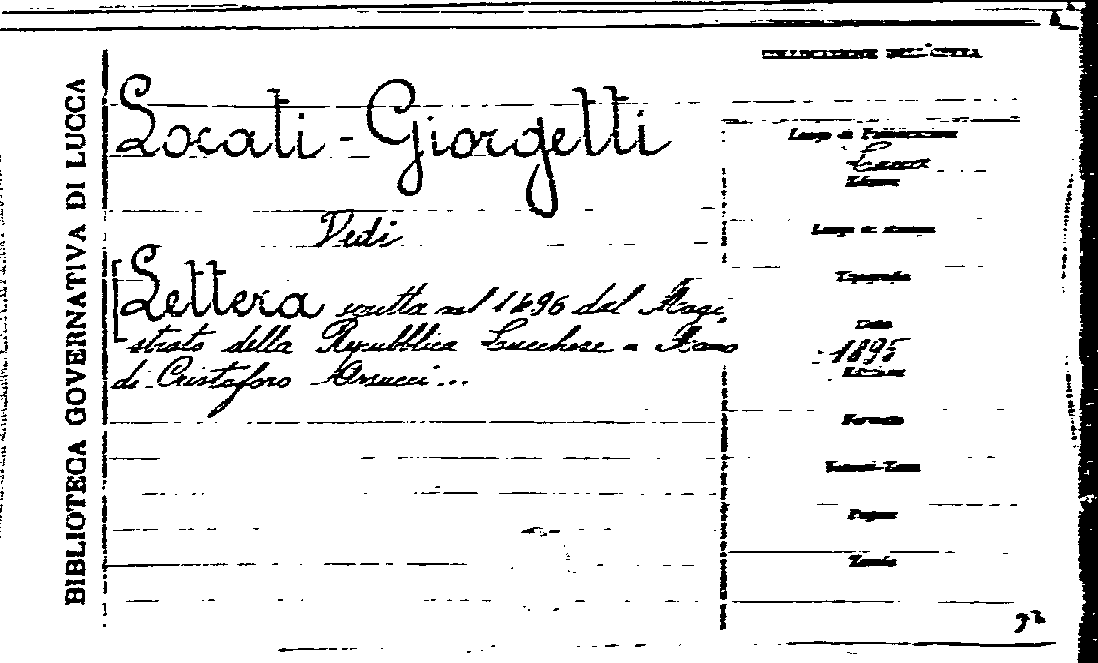 BIBLIOTECA GOVERNATIVA DI LUCCA
COLLOCAZIONE DELL'OPERA
Locati-Giorgetti
Vedi
[Lettera scritta nel 1496 dal Magi
strato della Repubblica Lucchese a
di Cristoforo Arnucci...
Luogo di Pubblicazione
Lucca
Edizione
Luogo di stampa
Tipografia
Data
1895
Formato
Pagine
Tavole
92